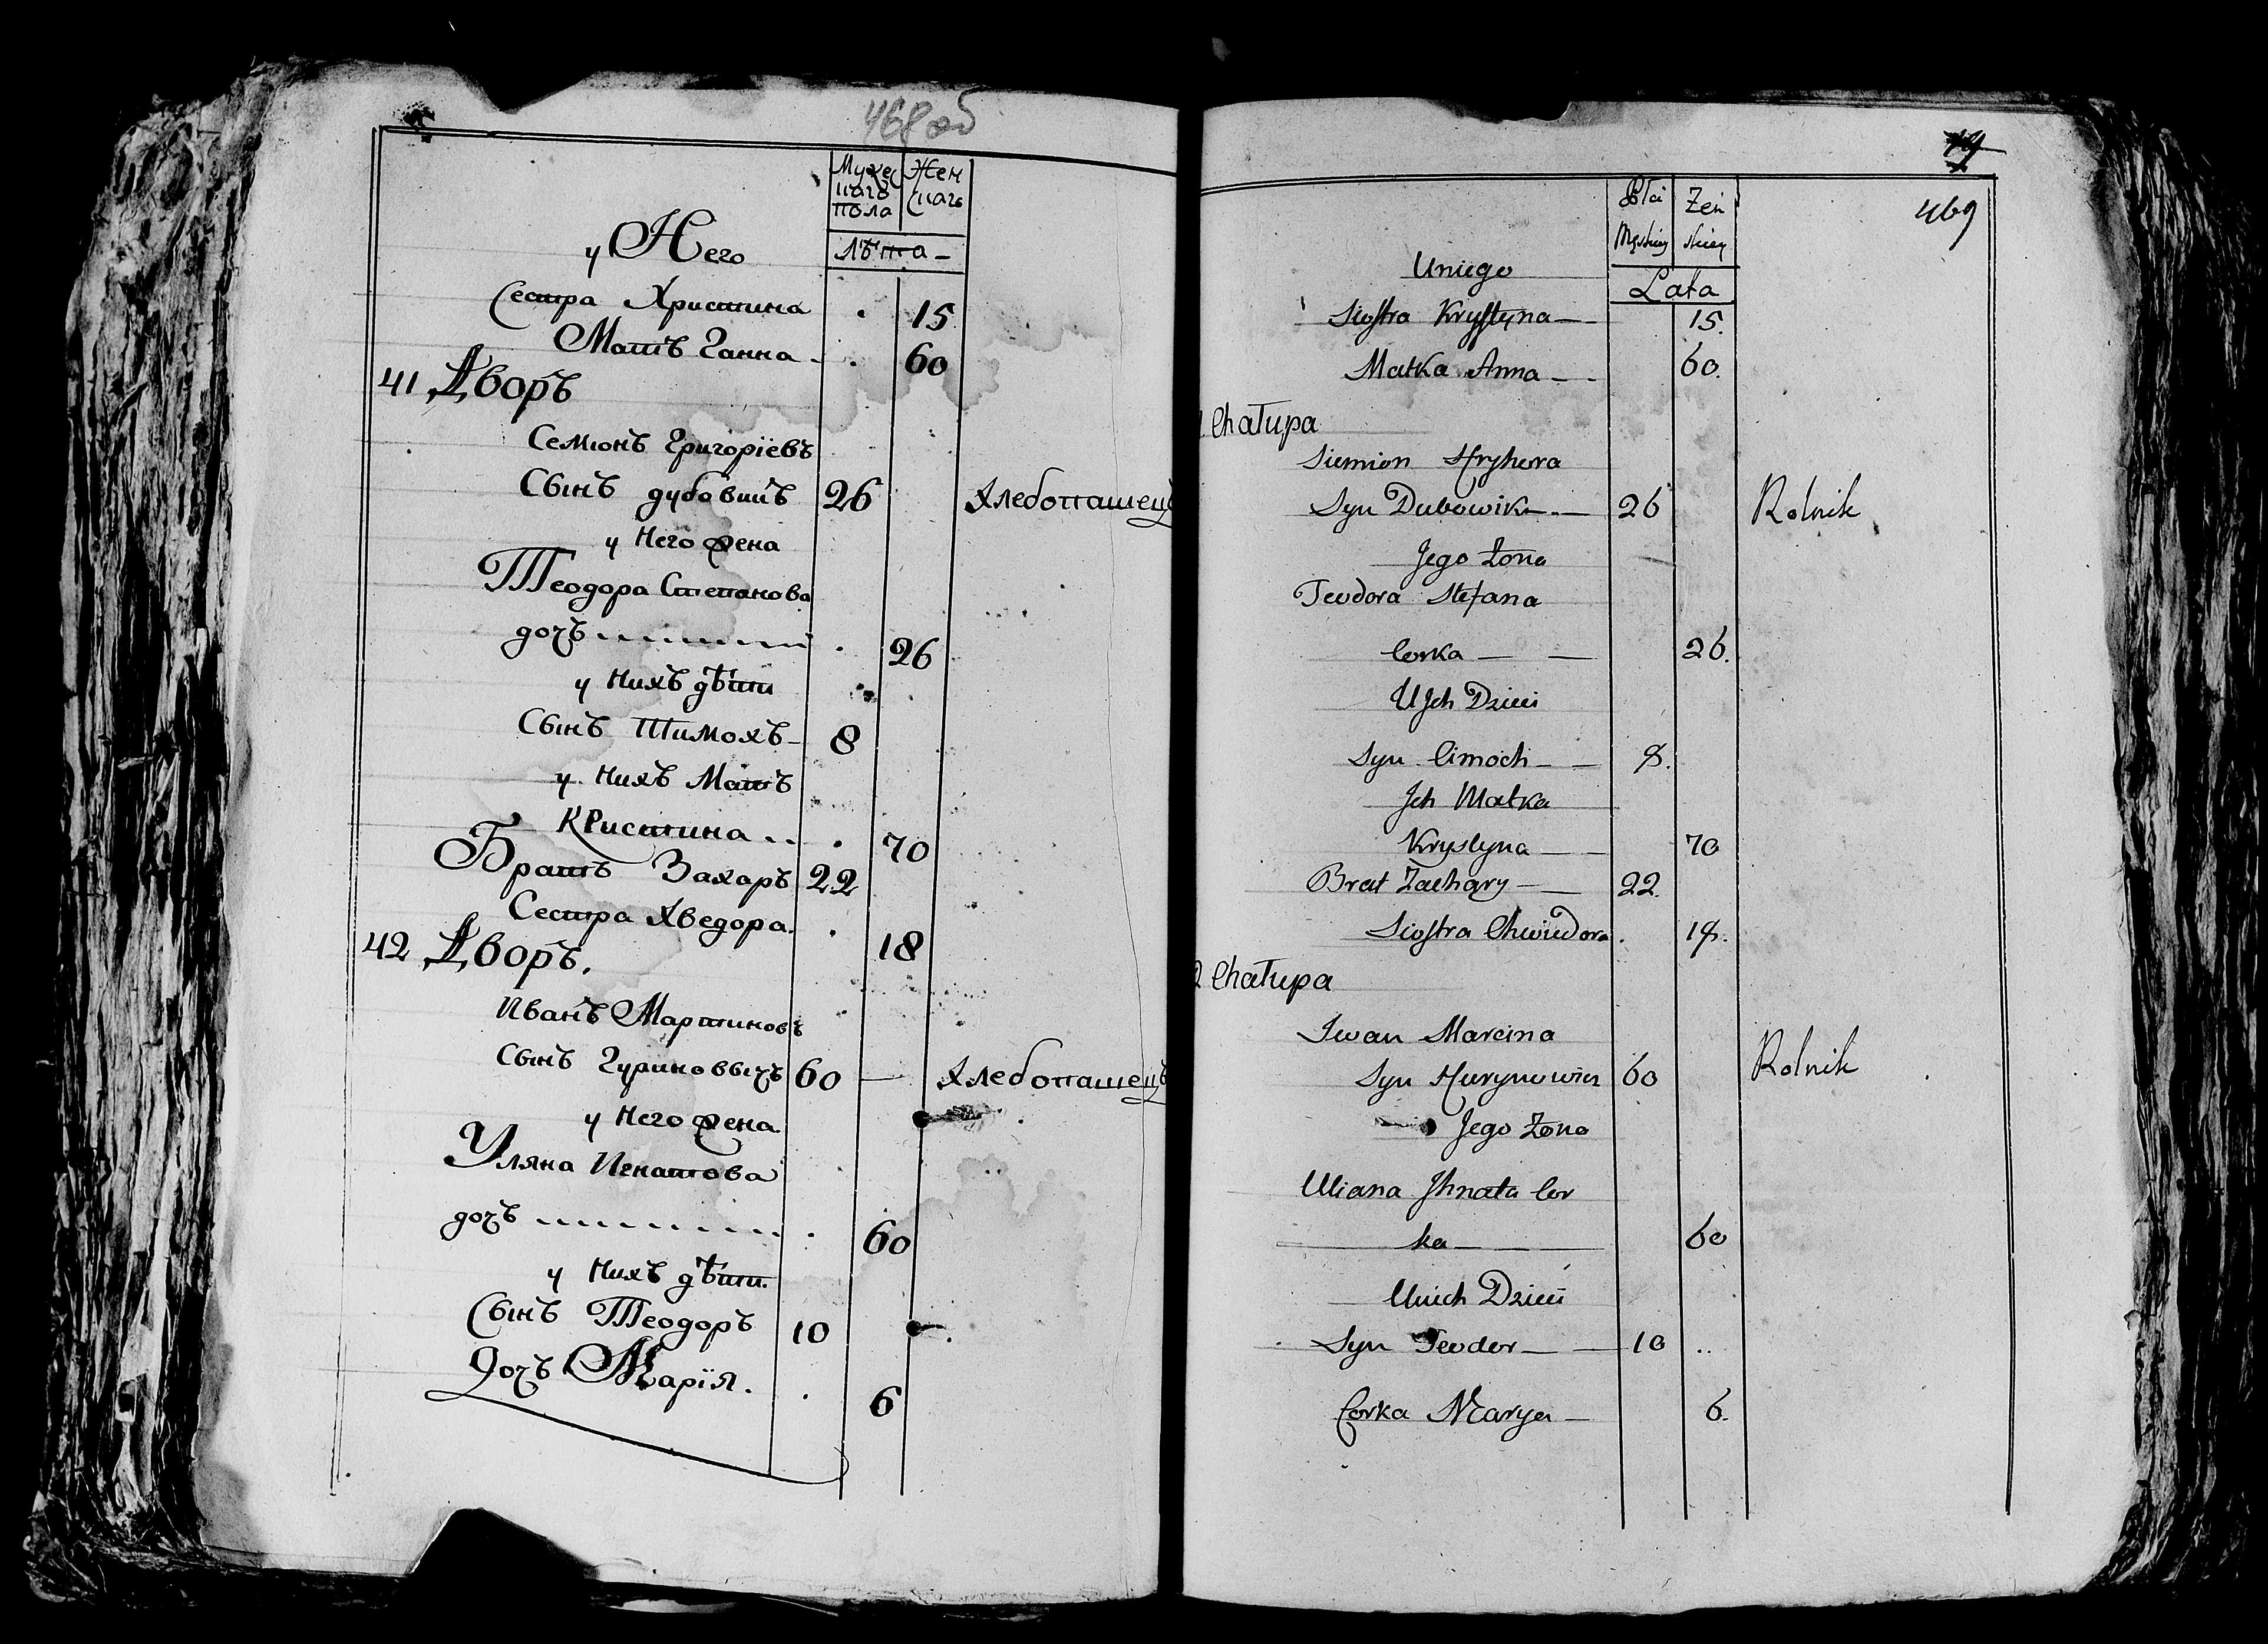 468 об
Мужес Жен
каго скаго
пола
Лѣта
у Него
Сестра Христина . 15
Мать Ганна . 60
41 Дворъ
Семіонъ Григоріевъ
Сынъ дубовикъ 26 Хлебопашецъ
у Него жена
Теодора Степанова
дочъ . 26
у Нихъ дѣти
Сынъ Тимохъ 8
у Нихъ Мать
Кристина . 70
Братъ Захаръ 22
Сестра Хведора . 18
42 Дворъ.
Иванъ Мартиновъ
Сынъ Гуриновычъ 60 — Хлебопашецъ
у Него жена
Уляна Игнатова
дочъ . 60
у Нихъ дѣти.
Сынъ Теодоръ 10
Дочъ Марія . 6
469
Płci Żeń
Męskiey skiey
Lata
Uniego
Siostra Krystyna — 15.
Matka Anna — 60.
Chałupa
Siemion Hryhora
Syn Dubowik — 26 Rolnik
Jego Żona
Teodora Stefana
Corka — — 26.
U Jch Dzieci
Syn Cimoch — — 8.
Jch Matka
Krystyna — — 70
Brat Zachary — — 22.
Siostra Chwiedora . 18.
2 Chałupa
Iwan Marcina
Syn Hurynowicz 60 Rolnik
Jego Żona
Uliana Jhnata Cor
ka — — 60
Unich Dzieci
Syn Teodor — — 10 ..
Corka Marya — 6.